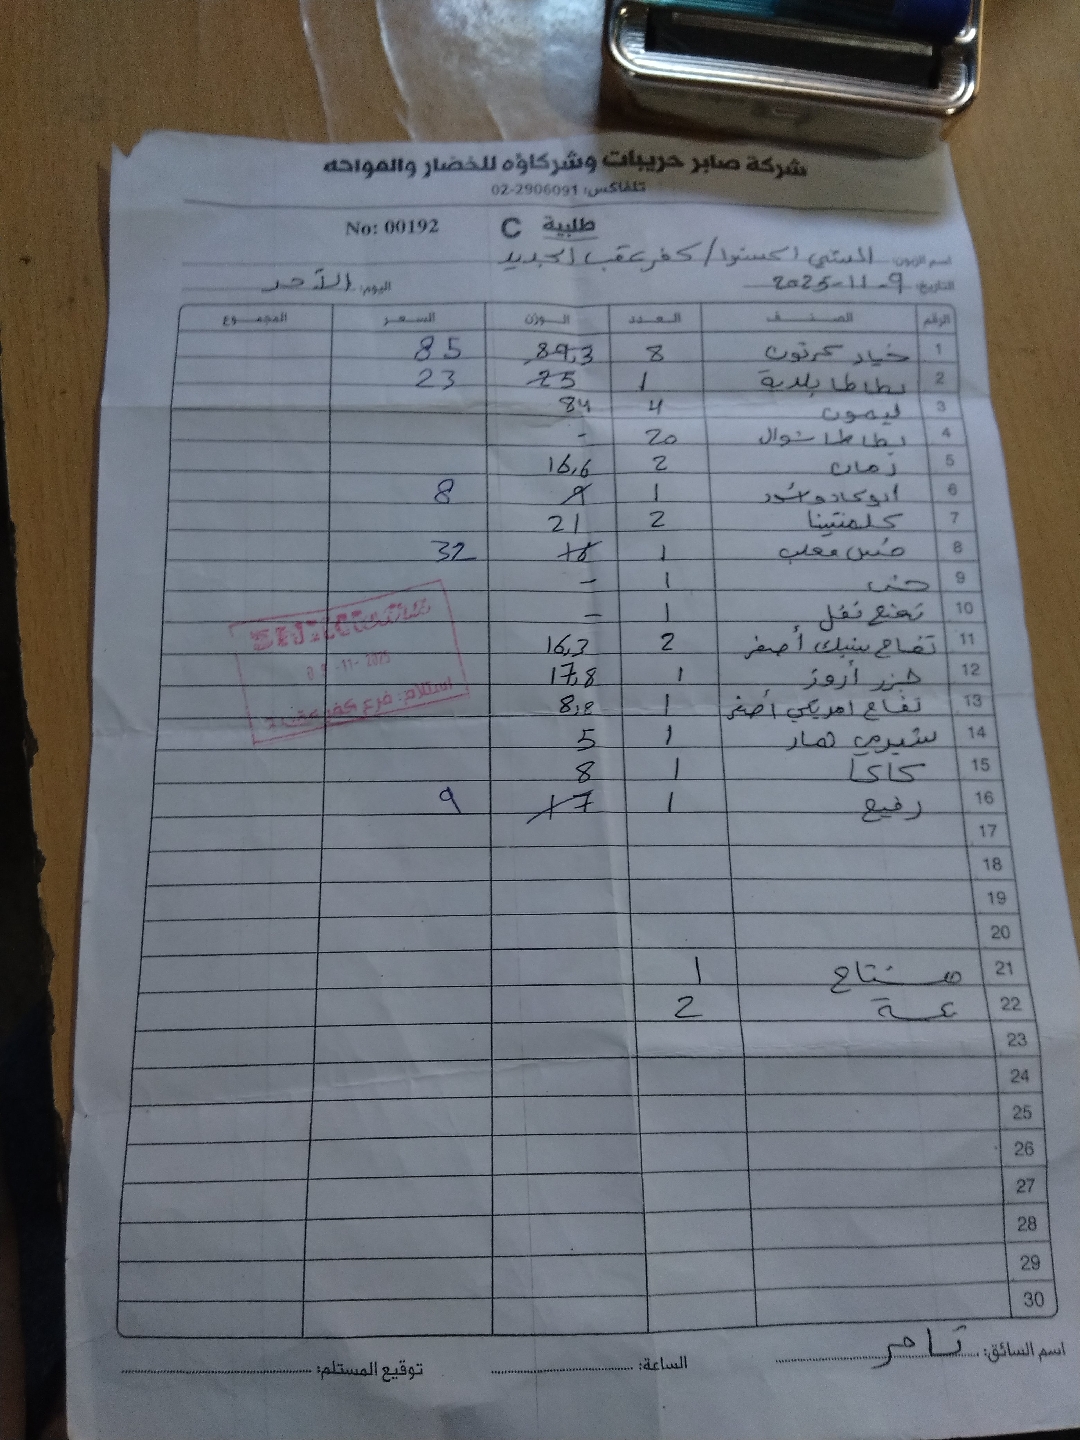 شركة صابر حريبات وشركاؤه للخضار والفواكه
تلفاكس: 02-2906091
No: 00192 C طلبية
اسم الزبون: / كفر عقب الجديد
التاريخ: 9-11-2025 اليوم: الأحد
الرقم الصنف العدد الوزن السعر المجموع
1 خيار كرتون 8 89,3 85
2 بطاطا بلدية 1 25 23
3 ليمون 4 84
4 بطاطا شوال 20 -
5 رمان 2 16,6
6 افوكادو 1 9 8
7 كلمنتينا 2 21
8 معلب 1 32
9 1 -
10 1 -
11 تفاح أصفر 2 16,3
12 جزر أروز 1 17,8
13 تفاح امريكي أصفر 1 8,8
14 شيري 1 5
15 كاكا 1 8
16 رفيع 1 17 9
17
18
19
20
21 1
22 2
23
24
25
26
27
28
29
30
09-11-2025
استلام: فرع كفر عقب 2
اسم السائق: تامر الساعة: توقيع المستلم: